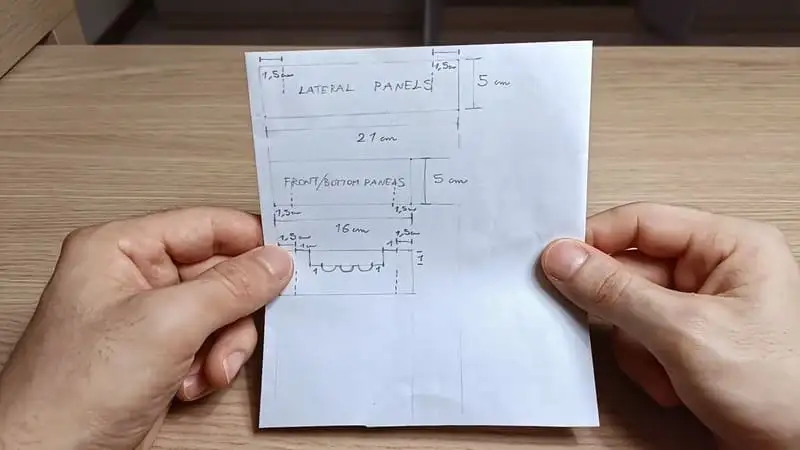 1,5cm 1,5cm
LATERAL PANELS 5 cm
21 cm
FRONT/BOTTOM PANEAS 5 cm
1,5cm 1,5cm
16 cm
1,5cm 1,5cm
1cm 1 1
1 1